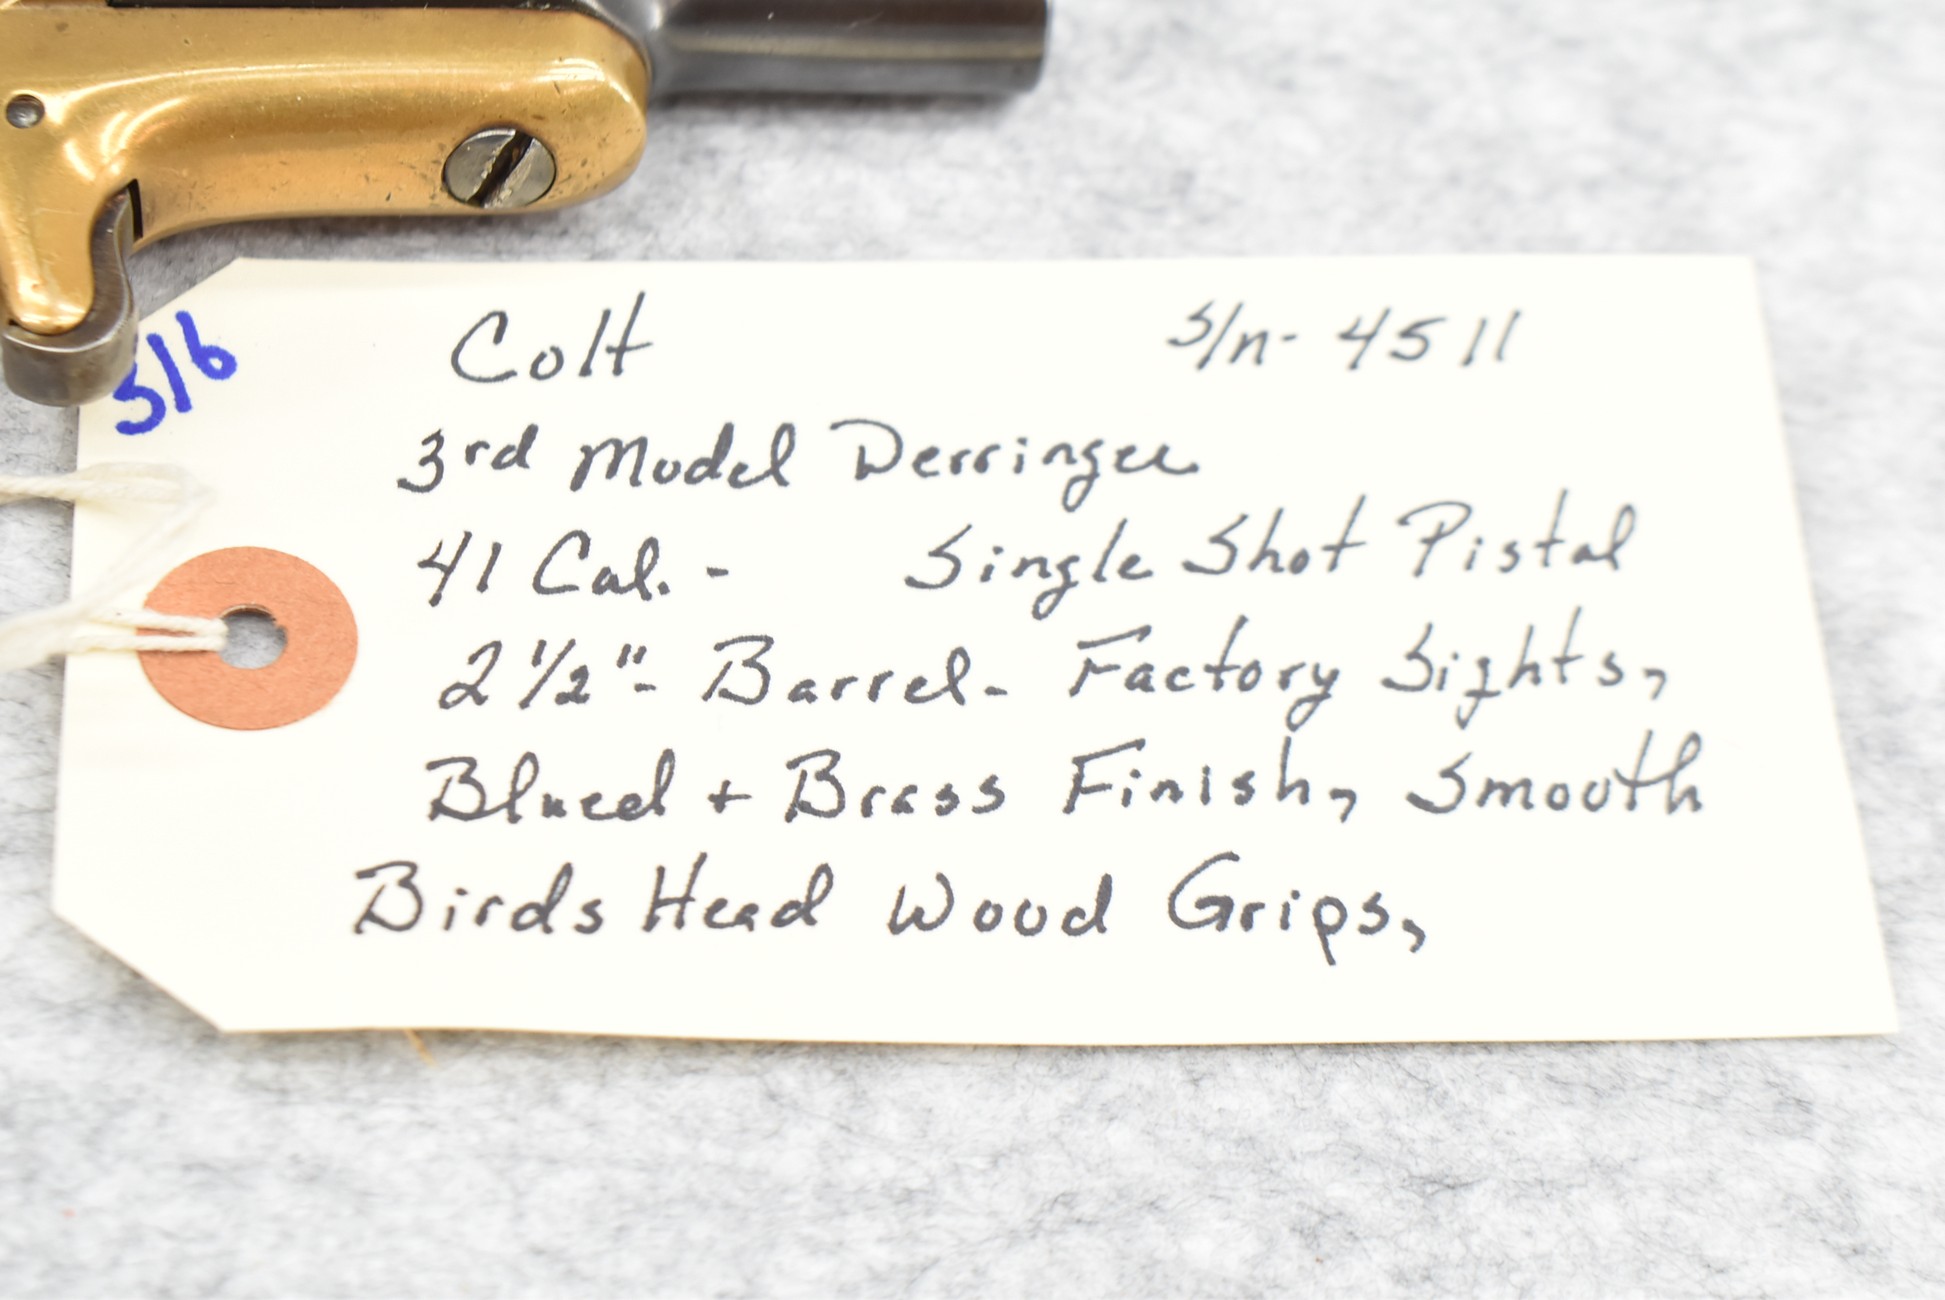 516
Colt s/n- 4511
3rd Model Derringer
41 Cal. - Single Shot Pistol
2 1/2"- Barrel- Factory Sights,
Blued + Brass Finish, Smooth
Birds Head Wood Grips,